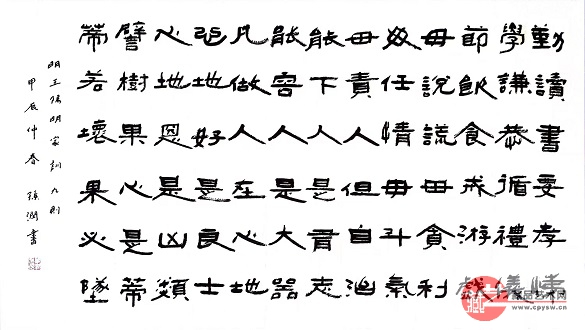 勤讀書要孝悌
學謙恭循禮儀
節飲食戒游戲
毋說謊毋貪利
毋任情毋斗氣
毋責人但自治
能下人是有志
能容人是大器
凡做人在心地
心地好是良士
心地恶是凶類
譬樹果心是蒂
蒂若壞果必墜
明王陽明家訓九則
甲辰仲春 書
藏
藏品艺术网
www.cpysw.com